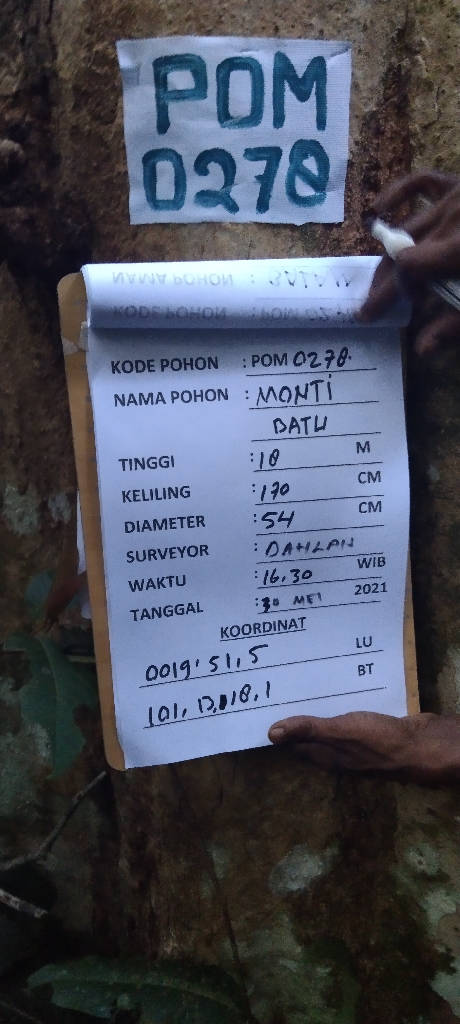 POM
0278
NAMA POHON : 
KODE POHON : POM 02
KODE POHON : POM 0278.
NAMA POHON : MONTI
BATU
TINGGI : 18 M
KELILING : 170 CM
DIAMETER : 54 CM
SURVEYOR : DAHLAN
WAKTU : 16.30 WIB
TANGGAL : 30 MEI 2021
KOORDINAT
0019' 51,5 LU
BT